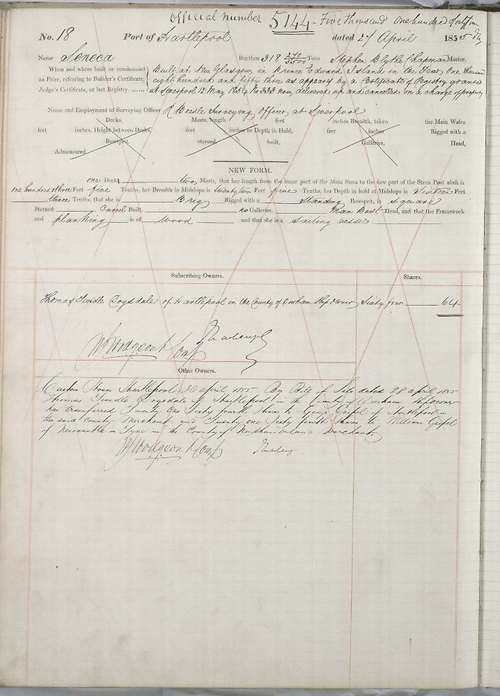 Official Number 5144 - Five thousand one hundred & forty four
No. 18 Port of Hartlepool dated 27 April 1855
Name Seneca Burthen 318 Tons Stephen Blythe Chapman Master.
When and where built or condemned Built at New Glasgow in Prince Edwards Island in the Year One thousand
as Prize, referring to Builder's Certificate, eight hundred and fifty three as appears by a Certificate of Registry granted
Judge's Certificate, or last Registry at Liverpool 12 May 1854 No 222 now delivered up and cancelled on a change of property
Name and Employment of Surveying Officer Surveying Officer, at Liverpool
Decks, Masts, Length inches Breadth, takes the Main Wales
feet inches, Height between Decks, feet inches Depth in Hold, feet inches Rigged with a
Bowsprit, sterned built, Galleries, Head,
Admeasured
NEW FORM.
one Decks two Masts, that her length from the inner part of the Main Stem to the fore part of the Stern Post aloft is
one hundred & three Feet five Tenths, her Breadth in Midships is twenty two Feet nine Tenths, her Depth in Hold at Midships is sixteen Feet
three Tenths, that she is Brig Rigged with a Standing Bowsprit, is Square
Sterned Carvel Built, no Galleries, Man Bust Head, and that the Framework
and planking is of wood and that she is a Sailing vessel
Subscribing Owners. Shares.
Thomas Tweddle Corysdale of Hartlepool in the County of Durham Ship Owner Sixty four 64
Wm Hodgson Collr
Other Owners.
Custom House Hartlepool 30 April 1855 By Bill of Sale dated 28 April 1855
Thomas Tweddle Corysdale of Hartlepool in the County of Durham Shipowner
has transferred Twenty one Sixty fourth Shares to George Gripel of Hartlepool in
the said County Merchant and Twenty one Sixty fourth Shares to William Gripel
of Newcastle on Tyne in the County of Northumberland Merchant
Wm Hodgson Collr